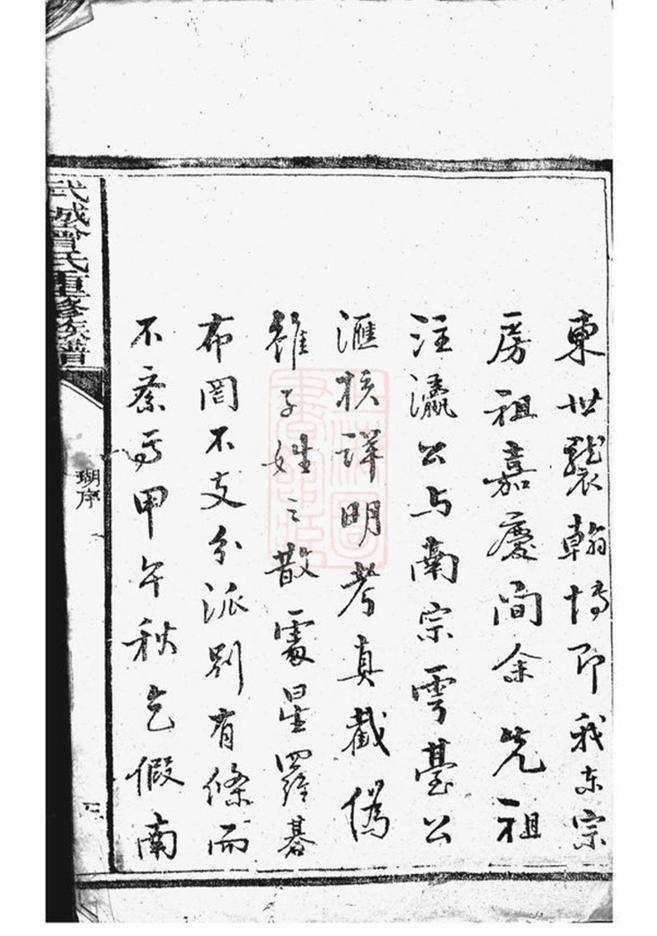 東世襲翰博即我東宗
房祖嘉慶間余先祖
注瀛公与南宗雩臺公
滙核詳明考真截偽
雖子姓之散處星羅碁
布罔不支分派別有條而
不紊焉甲午秋乞假南
武城曾氏重修族譜
瑚序